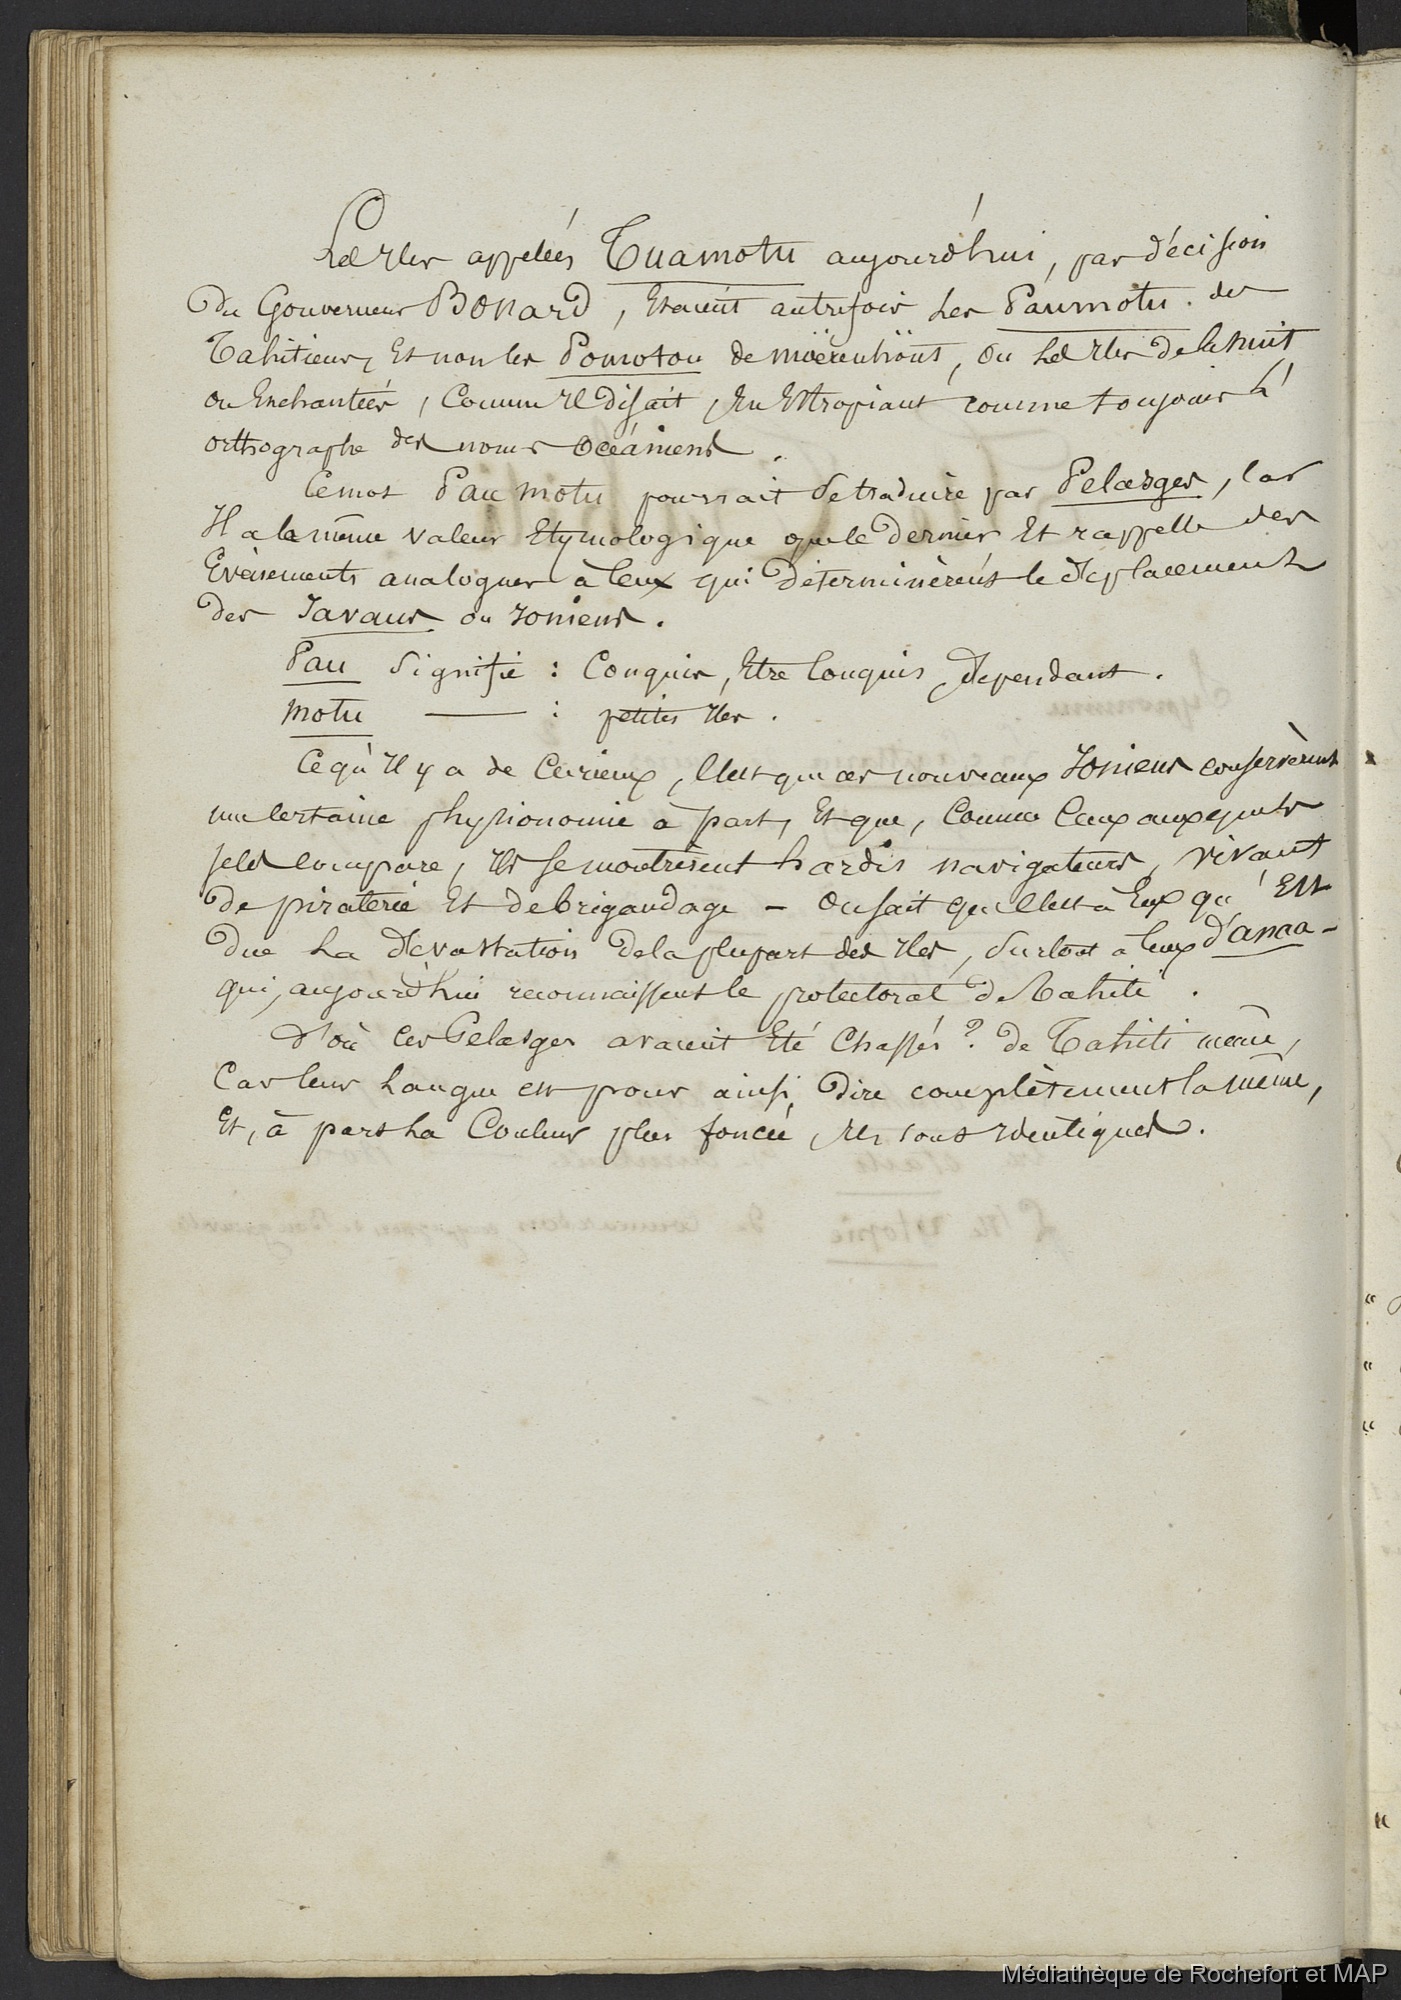 Les Iles appelées Tuamotu aujourd'hui, par décision
Du Gouverneur Bonard, Etaient autrefois les Paumotu des
Tahitiens, Et non les Pomotou de moërenhoüt, ou les Iles de la nuit
ou Enchantées, Comme Il disait, En Estropiant comme toujours l'
orthographe des noms océaniens.
Ce mot Pau motu pourrait se traduire par Pelasges, Car
Il a la même valeur Etymologique que le dernier Et rappelle des
Evènements analogues à Ceux qui déterminèrent le déplacement
des Javans ou Ioniens.
Pau Signifie : Conquis, Etre Conquis, dependant.
motu — : petites Iles.
Ce qu'Il y a de Curieux, C'est que ces nouveaux Ioniens conservèrent
une Certaine physionomie à part, Et que, Comme Ceux auxquels
je les Compare, Ils se montrèrent hardis navigateurs, vivant
De piraterie Et de brigandage – On sait que C'est à Eux qu'Est
Due la dévastation De la plupart des Iles, Surtout à Ceux d'anaa -
qui, aujourd'hui reconnaissent le protectorat de Tahiti.
d'où Ces Pelasges avaient Eté Chassés ? de Tahiti même,
Car leur langue est pour ainsi Dire complètement la même,
Et, à part la Couleur plus foncée, Ils sont Identiques.
Médiathèque de Rochefort et MAP